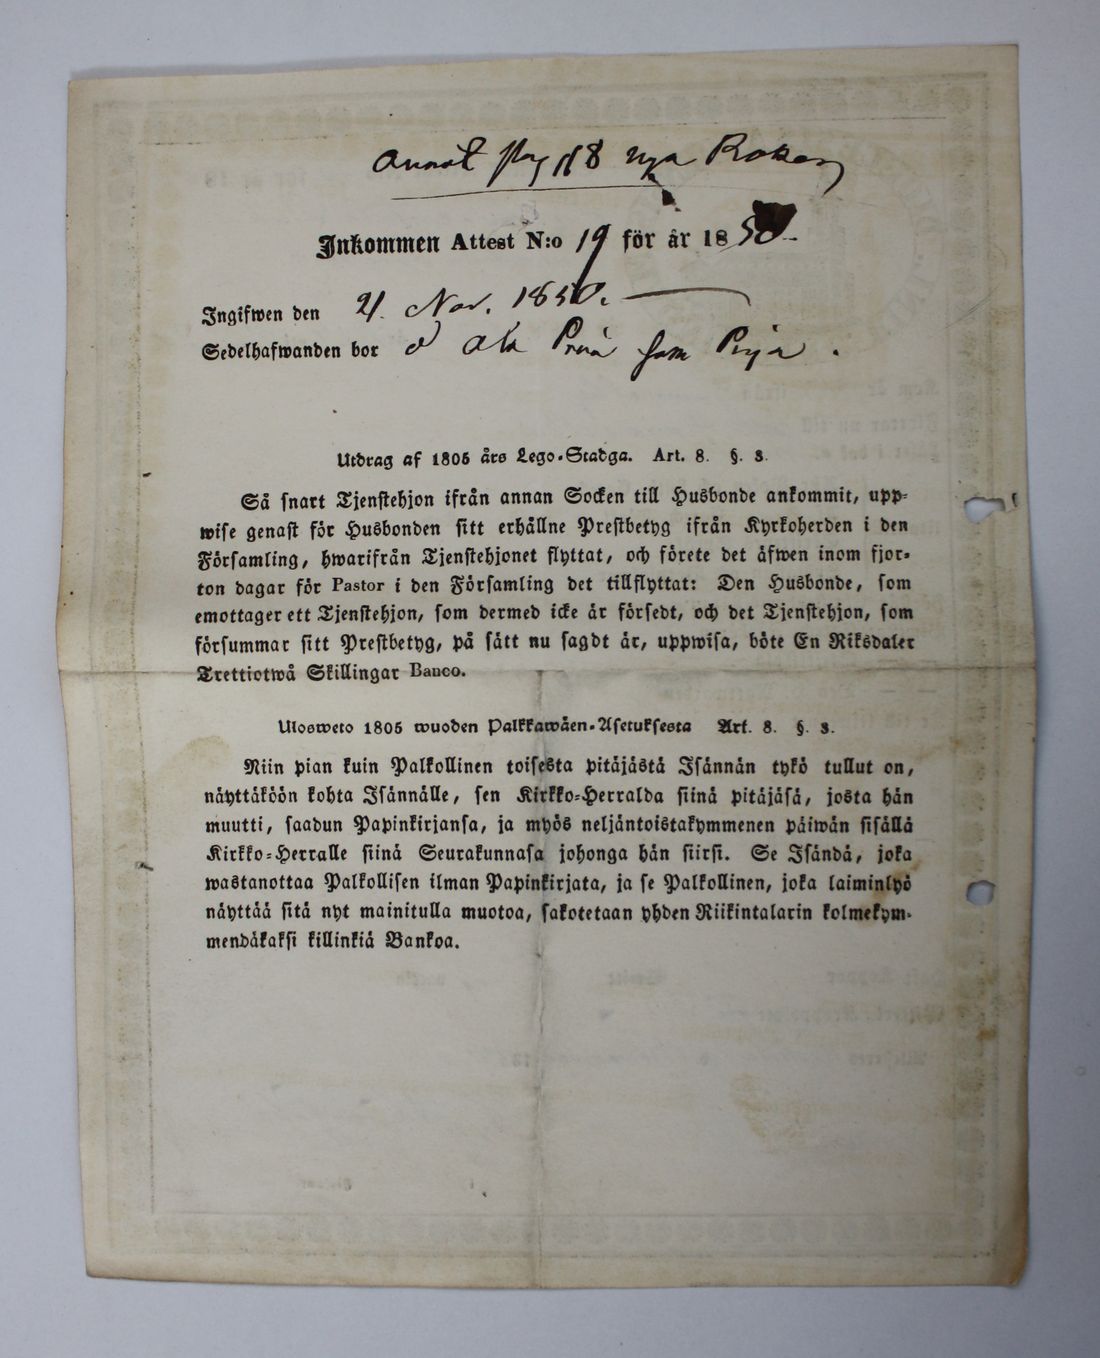 nya Boken
Inkommen Attest N:o 19 för år 1850
Ingifwen den 21. Nov. 1850.
Sedelhafwanden bor å Ala som Piga.
Utdrag af 1805 års Lego-Stadga. Art. 8. §. 3.
Så snart Tjenstehjon ifrån annan Socken till Husbonde ankommit, upp-
wise genast för Husbonden sitt erhållne Prestbetyg ifrån Kyrkoherden i den
Församling, hwarifrån Tjenstehjonet flyttat, och förete det äfwen inom fjor-
ton dagar för Pastor i den Församling det tillflyttat: Den Husbonde, som
emottager ett Tjenstehjon, som dermed icke är försedt, och det Tjenstehjon, som
försummar sitt Prestbetyg, på sätt nu sagdt är, uppwisa, böte En Riksdaler
Trettiotwå Skillingar Banco.
Ulosweto 1805 wuoden Palkkawäen-Asetuksesta Art. 8. §. 3.
Niin pian kuin Palkollinen toisesta pitäjästä Isännän tykö tullut on,
näyttäköön kohta Isännälle, sen Kirkko-Herralda siinä pitäjäsä, josta hän
muutti, saadun Papinkirjansa, ja myös neljäntoistakymmenen päiwän sisällä
Kirkko-Herralle siinä Seurakunnasa johonga hän siirsi. Se Isändä, joka
wastanottaa Palkollisen ilman Papinkirjata, ja se Palkollinen, joka laiminlyö
näyttää sitä nyt mainitulla muotoa, sakotetaan yhden Riikintalarin kolmekym-
mendäkaksi killinkiä Bankoa.